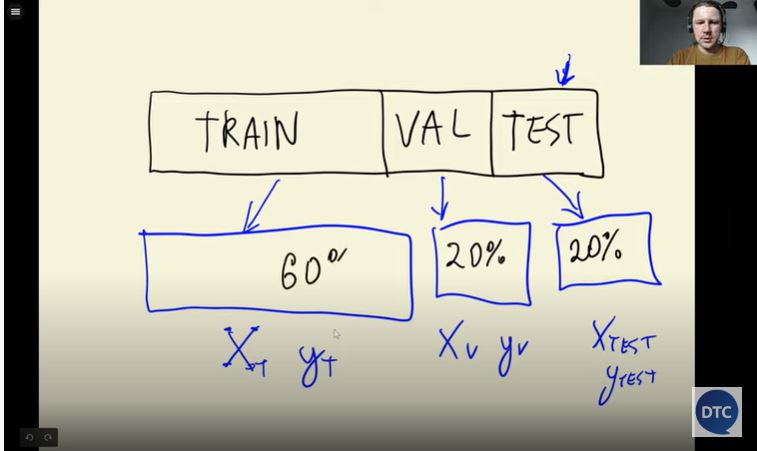 TRAIN VAL TEST
60% 20% 20%
X_T y_T X_V y_V X_TEST
y_TEST
DTC